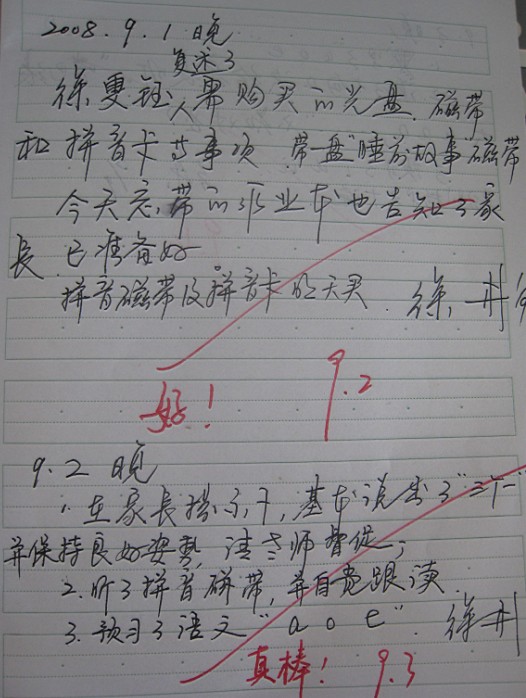 2008.9.1晚
复述了
徐雯钰人帮购买的光盘、磁带
和拼音卡等事项 带一盘"睡前故事磁带
今天忘带的作业本也告知了家
長 已准备好
拼音磁带及拼音卡明天买 徐井
好! 9.2
9.2 晚
1.在家長提示下,基本说出了"三个一"
并保持良好姿勢,请老师督促;
2.听了拼音磁带,并自觉跟读.
3.预习了语文"a o e" 徐井
真棒! 9.3